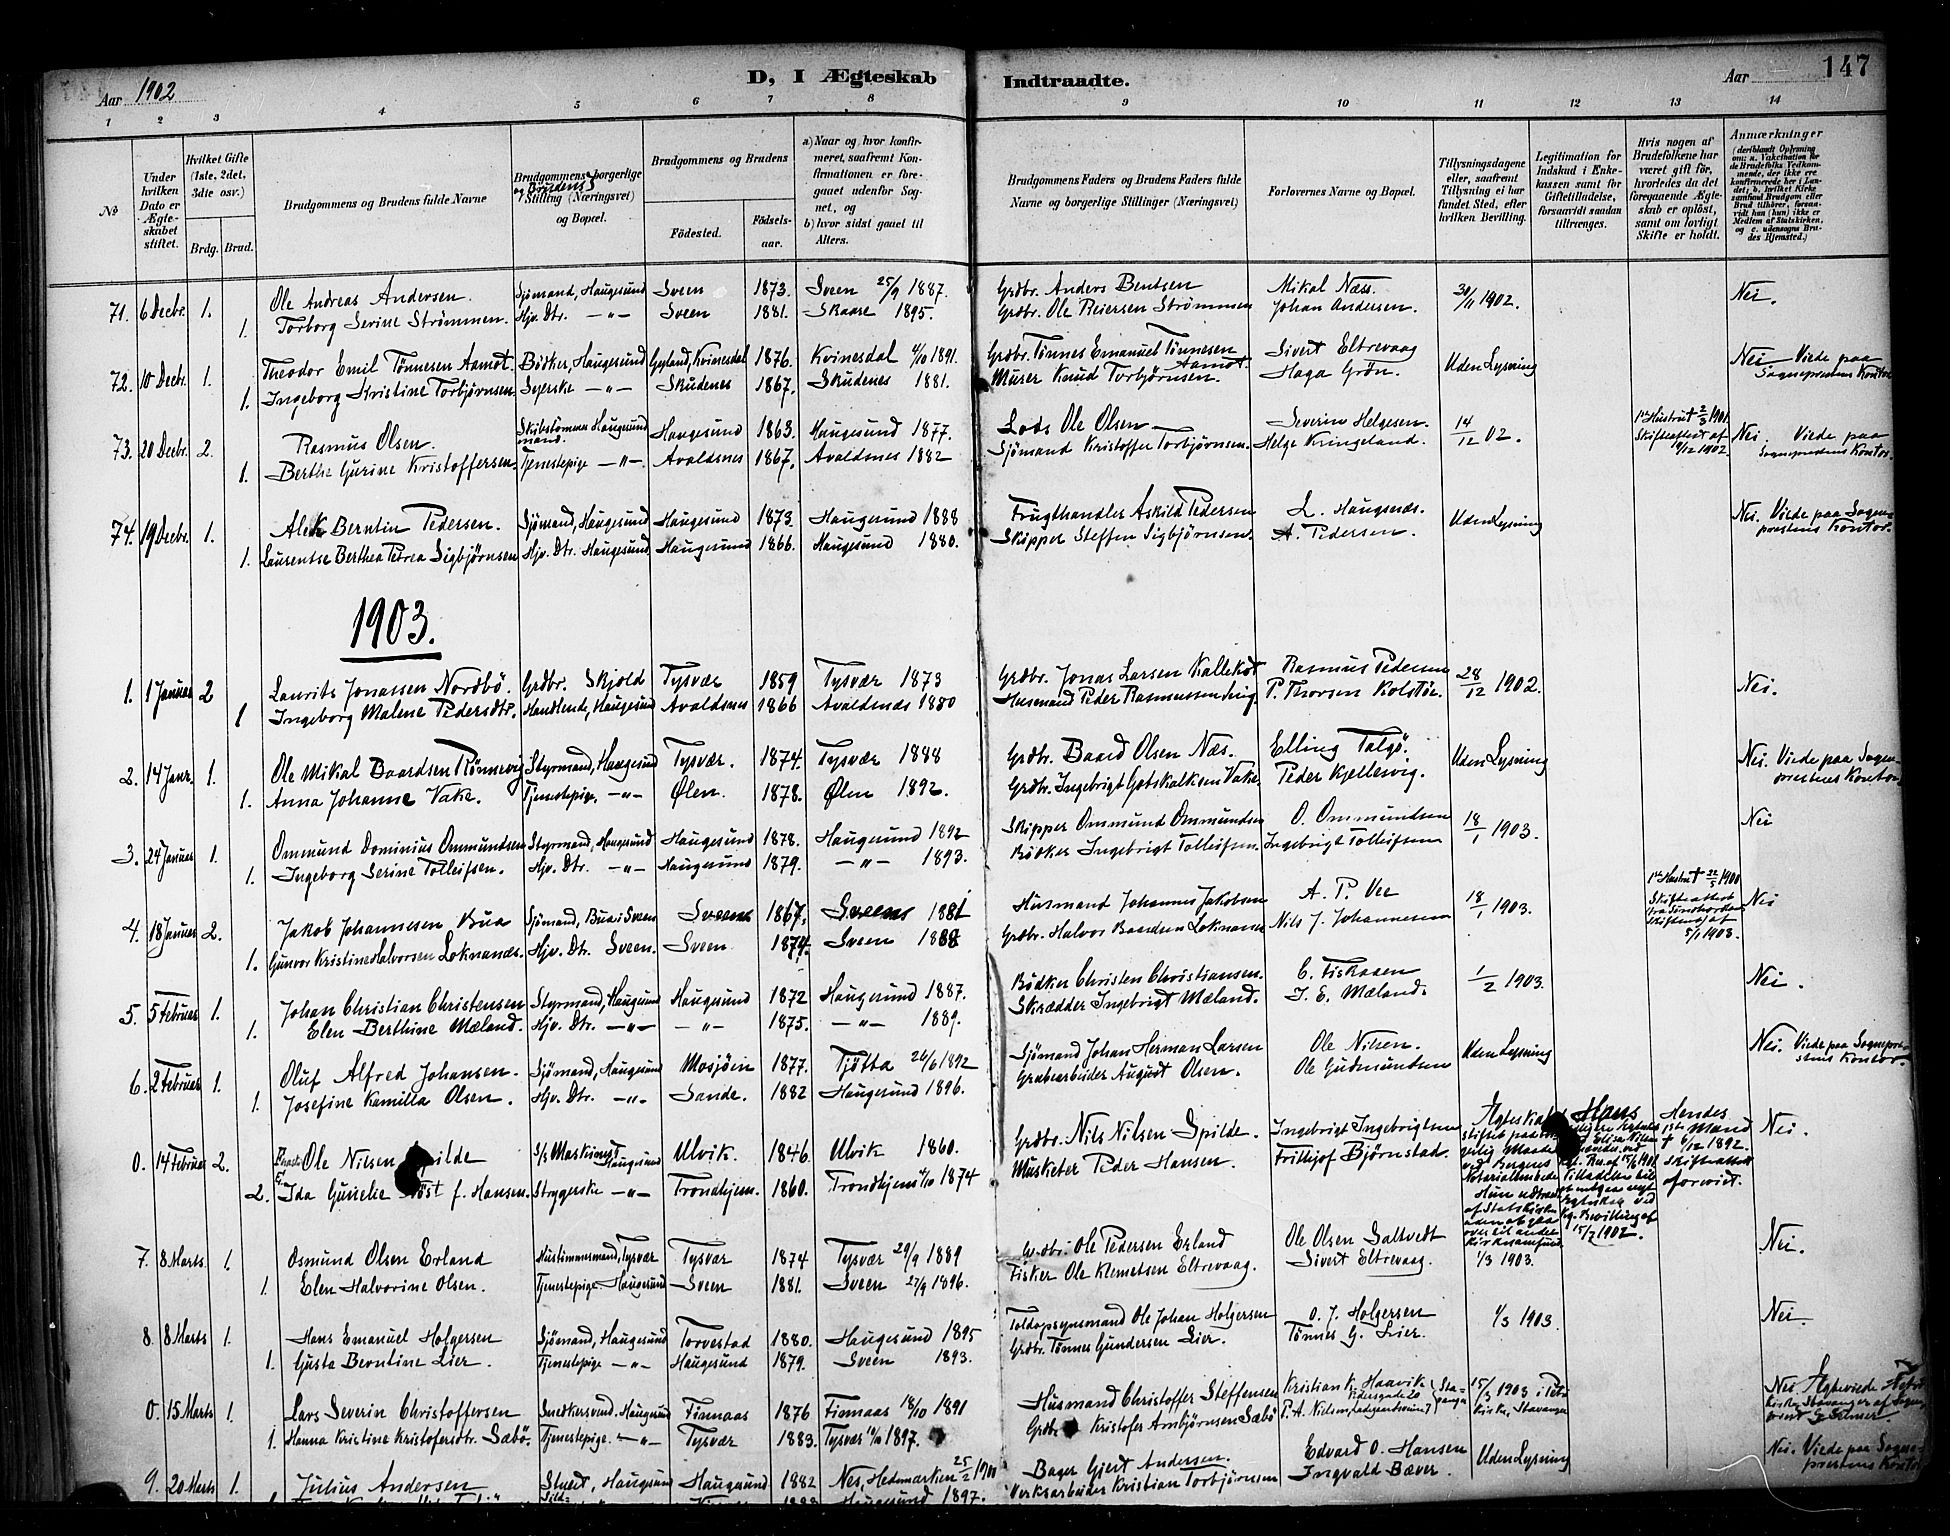 147
D, I Ægteskab Indtraadte.
Aar 1902
Aar
1 2 3 4 5 6 7 8 9 10 11 12 13 14
No
Under hvilken Dato er Ægteskabet stiftet.
Hvilket Gifte (1ste, 2det, 3die osv.)
Brdg. Brud.
Brudgommens og Brudens fulde Navne
Brudgommens og Brudens borgerlige Stilling (Næringsvei) og Bopæl.
Brudgommens og Brudens
Fødested.
Fødselsaar.
a) Naar og hvor konfirmeret, saafremt Konfirmationen er foregaaet udenfor Sognet, og
b) hvor sidst gaaet til Alters.
Brudgommens Faders og Brudens Faders fulde Navne og borgerlige Stillinger (Næringsvei)
Forlovernes Navne og Bopæl.
Tillysningsdagene eller, saafremt Tillysning ei har fundet Sted, efter hvilken Bevilling.
Legitimation for Indskud i Enkekassen samt for Giftetilladelse, forsaavidt saadan tiltrænges.
Hvis nogen af Brudefolkene har været gift før, hvorledes da det foregaaende Ægteskab er opløst, samt om lovligt Skifte er holdt.
Anmærkninger (deriblandt Oplysning om: a. Vakcination for de Brudefolks Vedkommende, der ikke ere konfirmerede her i Landet; b. hvilket Kirkesamfund Brudgom eller Brud tilhører, forsaavidt han (hun) ikke er Medlem af Statskirken, og c. udensogns Brudes Hjemsted.)
71. 6 Decbr. 1. Ole Andreas Andersen. Sjømand, Haugesund Sveen 1873. Sveen 25/9 1887. Grdbr. Anders Bentsen Mikal Næss. 30/11 1902. Nei.
1. Torborg Serine Strømmen. Hjv. Dtr. —"— Sveen 1881. Skaare 1895. Grdbr. Ole Reiersen Strømmen Johan Andersen.
72. 10 Decbr. 1. Theodor Emil Tønnesen Aamot. Bødker, Haugesund Gyland, Kvinesdal 1876. Kvinesdal 4/10 1891. Grdbr. Tønnes Emanuel Tønnesen Aamot. Sivert Eltrevaag Uden Lysning Nei Viede paa Sogneprestens Kontor
1. Ingeborg Kristine Torbjørnsen Syerske —"— Skudenes 1867. Skudenes 1881. Murer Knud Torbjørnsen. Haga Grøn.
73. 20 Decbr. 2. Rasmus Olsen. Skibstømmermand. Haugesund Haugesund 1863. Haugesund 1877. Lods Ole Olsen Severin Helgesen. 14/12 02. 1ste Hustru † 2/3 1901 Skifteattest af 19/12 1902. Nei. Viede paa Sogneprestens Kontor.
1. Berthe Gurine Kristoffersen. Tjenestepige —"— Avaldsnes 1867. Avaldsnes 1882 Sjømand Kristoffer Torbjørnsen. Helge Kringeland.
74. 19 Decbr. 1. Alek Berntin Pedersen. Sjømand, Haugesund Haugesund 1873. Haugesund 1888 Frugthandler Askild Pedersen L. Haugenæs. Uden Lysning Nei. Viede paa Sogneprestens Kontor.
1. Laurentse Berthea Petrea Sigbjørnsen Hjv. Dtr. Haugesund Haugesund 1866. Haugesund 1880. Skipper Steffen Sigbjørnsen. A. Pedersen.
1903.
1. 1 Januar 2 Laurits Jonassen Nordbø. Grdbr. Skjold Tysvær 1859 Tysvær 1873 Grdbr. Jonas Larsen Kallekot Rasmus Pedersen 28/12 1902. Nei.
1 Ingeborg Malene Pedersdtr. Handlende, Haugesund Avaldsnes 1866 Avaldsnes 1880 Husmand Peder Rasmussen P. Thorsen Kolstø.
2. 14 Janr. 1. Ole Mikal Baardsen Rønnevig Styrmand, Haugesund Tysvær. 1874. Tysvær 1888 Grdbr. Baard Olsen Næs. Elling Talgø. Uden Lysning Nei. Viede paa Sogneprestens Kontor
1. Anna Johanne Vake. Tjenestepige. —"— Ølen. 1878. Ølen 1892. Grdbr. Ingebrigt Gotskalksen Vake. Peder Kjellesvig.
3. 24 Januar 1. Ommund Dominius Ommundsen Styrmand, Haugesund Haugesund 1878. Haugesund 1892 Skipper Ommund Ommundsen O. Ommundsen 18/1 1903. Nei
1. Ingeborg Serine Tolleifsen. Hjv. Dtr. —"— Haugesund 1879. —"— 1893. Bødker Ingebrigt Tolleifsen Ingebrigt Tolleifsen
4. 18 Januar 2. Jakob Johannesen Bua Sjømand, Bua i Sveen Sveen 1867. Sveen 1881 Husmand Johannes Jakobsen A. P. Vee 18/1 1903. 1ste Hustru † 22/5 1900 Skifteattest fra Søndhordlands Skifteret af 5/1 1903. Nei
1. Gunvor Kristine Halvorsen Loknanæs. Hjv. Dtr. Sveen. Sveen. 1874. Sveen 1888 Grdbr. Halvor Baardsen Loknanæs Nils J. Johannesen
5. 5 Februar 1. Johan Christian Christensen Styrmand, Haugesund Haugesund 1872 Haugesund 1887. Bødker Christen Christiansen. C. Fiskaaen 1/2 1903. Nei.
1. Elen Berthine Mæland. Hjv. Dtr. —"— —"— 1875. —"— 1889. Skrædder Ingebrigt Mæland. I. E. Mæland.
6. 2 Februar 1. Oluf Alfred Johansen. Sjømand, Haugesund Mosjøen 1877. Tjøtta 26/6 1892 Sjømand Johan Herman Larsen Ole Nilsen. Uden Lysning Nei. Viede paa Sogneprestens Kontor.
1. Josefine Kamilla Olsen. Hjv. Dtr. —"— Sande. 1882 Haugesund 1896. Grubearbeider August Olsen. Ole Gudmundsen
0. 14 Februar 2. Ole Nilsen Spilde S/s Maskinist Haugesund Ulvik. 1846. Ulvik 1860. Grdbr. Nils Nilsen Spilde. Ingebrigt Ingebrigtsen Ægteskabet stiftet paa borgerlig Maade ved Bergens Notarialembede Hun udtraadt af Statskirken uden at gaa over til andet Kirkesamfund. Hans Elisa 15/6 1901 Tilladelse til at indgaa nyt Ægteskab ved Kg. Bevilling af 15/7 1902. Hendes 1ste Mand † 6/12 1892. Skifteattest forevist. Nei.
2. Ida Gurrelie f. Hansen. Strygerske —"— Trondhjem. 1860. Trondhjem 4/10 1874 Musketer Peder Hansen. Frithjof Bjørnstad.
7. 8 Marts 1. Osmund Olsen Erland Hustimmermand, Tysvær Tysvær 1874 Tysvær 29/9 1889 Grdbr. Ole Pedersen Erland Ole Olsen Saltvedt 1/3 1903. Nei.
1. Elen Halvorine Olsen. Tjenestepige. Haugesund Sveen 1881. Sveen 27/9 1896. Fisker Ole Klemetsen Eltrevaag. Sivert Eltrevaag.
8. 8 Marts 1. Hans Emanuel Holgersen Sjømand, Haugesund Torvestad 1880. Haugesund 1895 Toldopsynsmand Ole Johan Holgersen O. J. Holgersen 1/3 1903. Nei.
1. Gusta Berntine Lier. Tjenestepige —"— Haugesund 1879. Sveen 1893. Grdbr. Tønnes Gundersen Lier. Tønnes G. Lier.
0. 15 Marts 1. Lars Severin Christoffersen Snedkersvend, Haugesund Finnaas 1876 Finnaas 18/10 1891 Husmand Christoffer Steffensen Kristian K. Haavik Pedersgade 20 Stavanger 15/3 1903 i Petri Kirke, Stavanger Nei. Ægteviede Kirke Stavanger af Sogneprest
1. Hanna Kristine Kristofersdtr. Sæbø. Tjenestepige. —"— Tysvær 1883. Tysvær 1897. Grdbr. Kristofer Ambjørnsen Sæbø P. A. Nielsen,
9. 20 Marts 1. Julius Andersen Stuert, Haugesund Haugesund 1882 Nes, Hedemarken 25/2 1900 Bager Gjert Andersen. Edvard O. Hansen Uden Lysning Nei. Viede paa Sogneprestens Kontor
Haugesund 1897. Verksarbeider Kristian Torbjørnsen Ingvald Bæver.